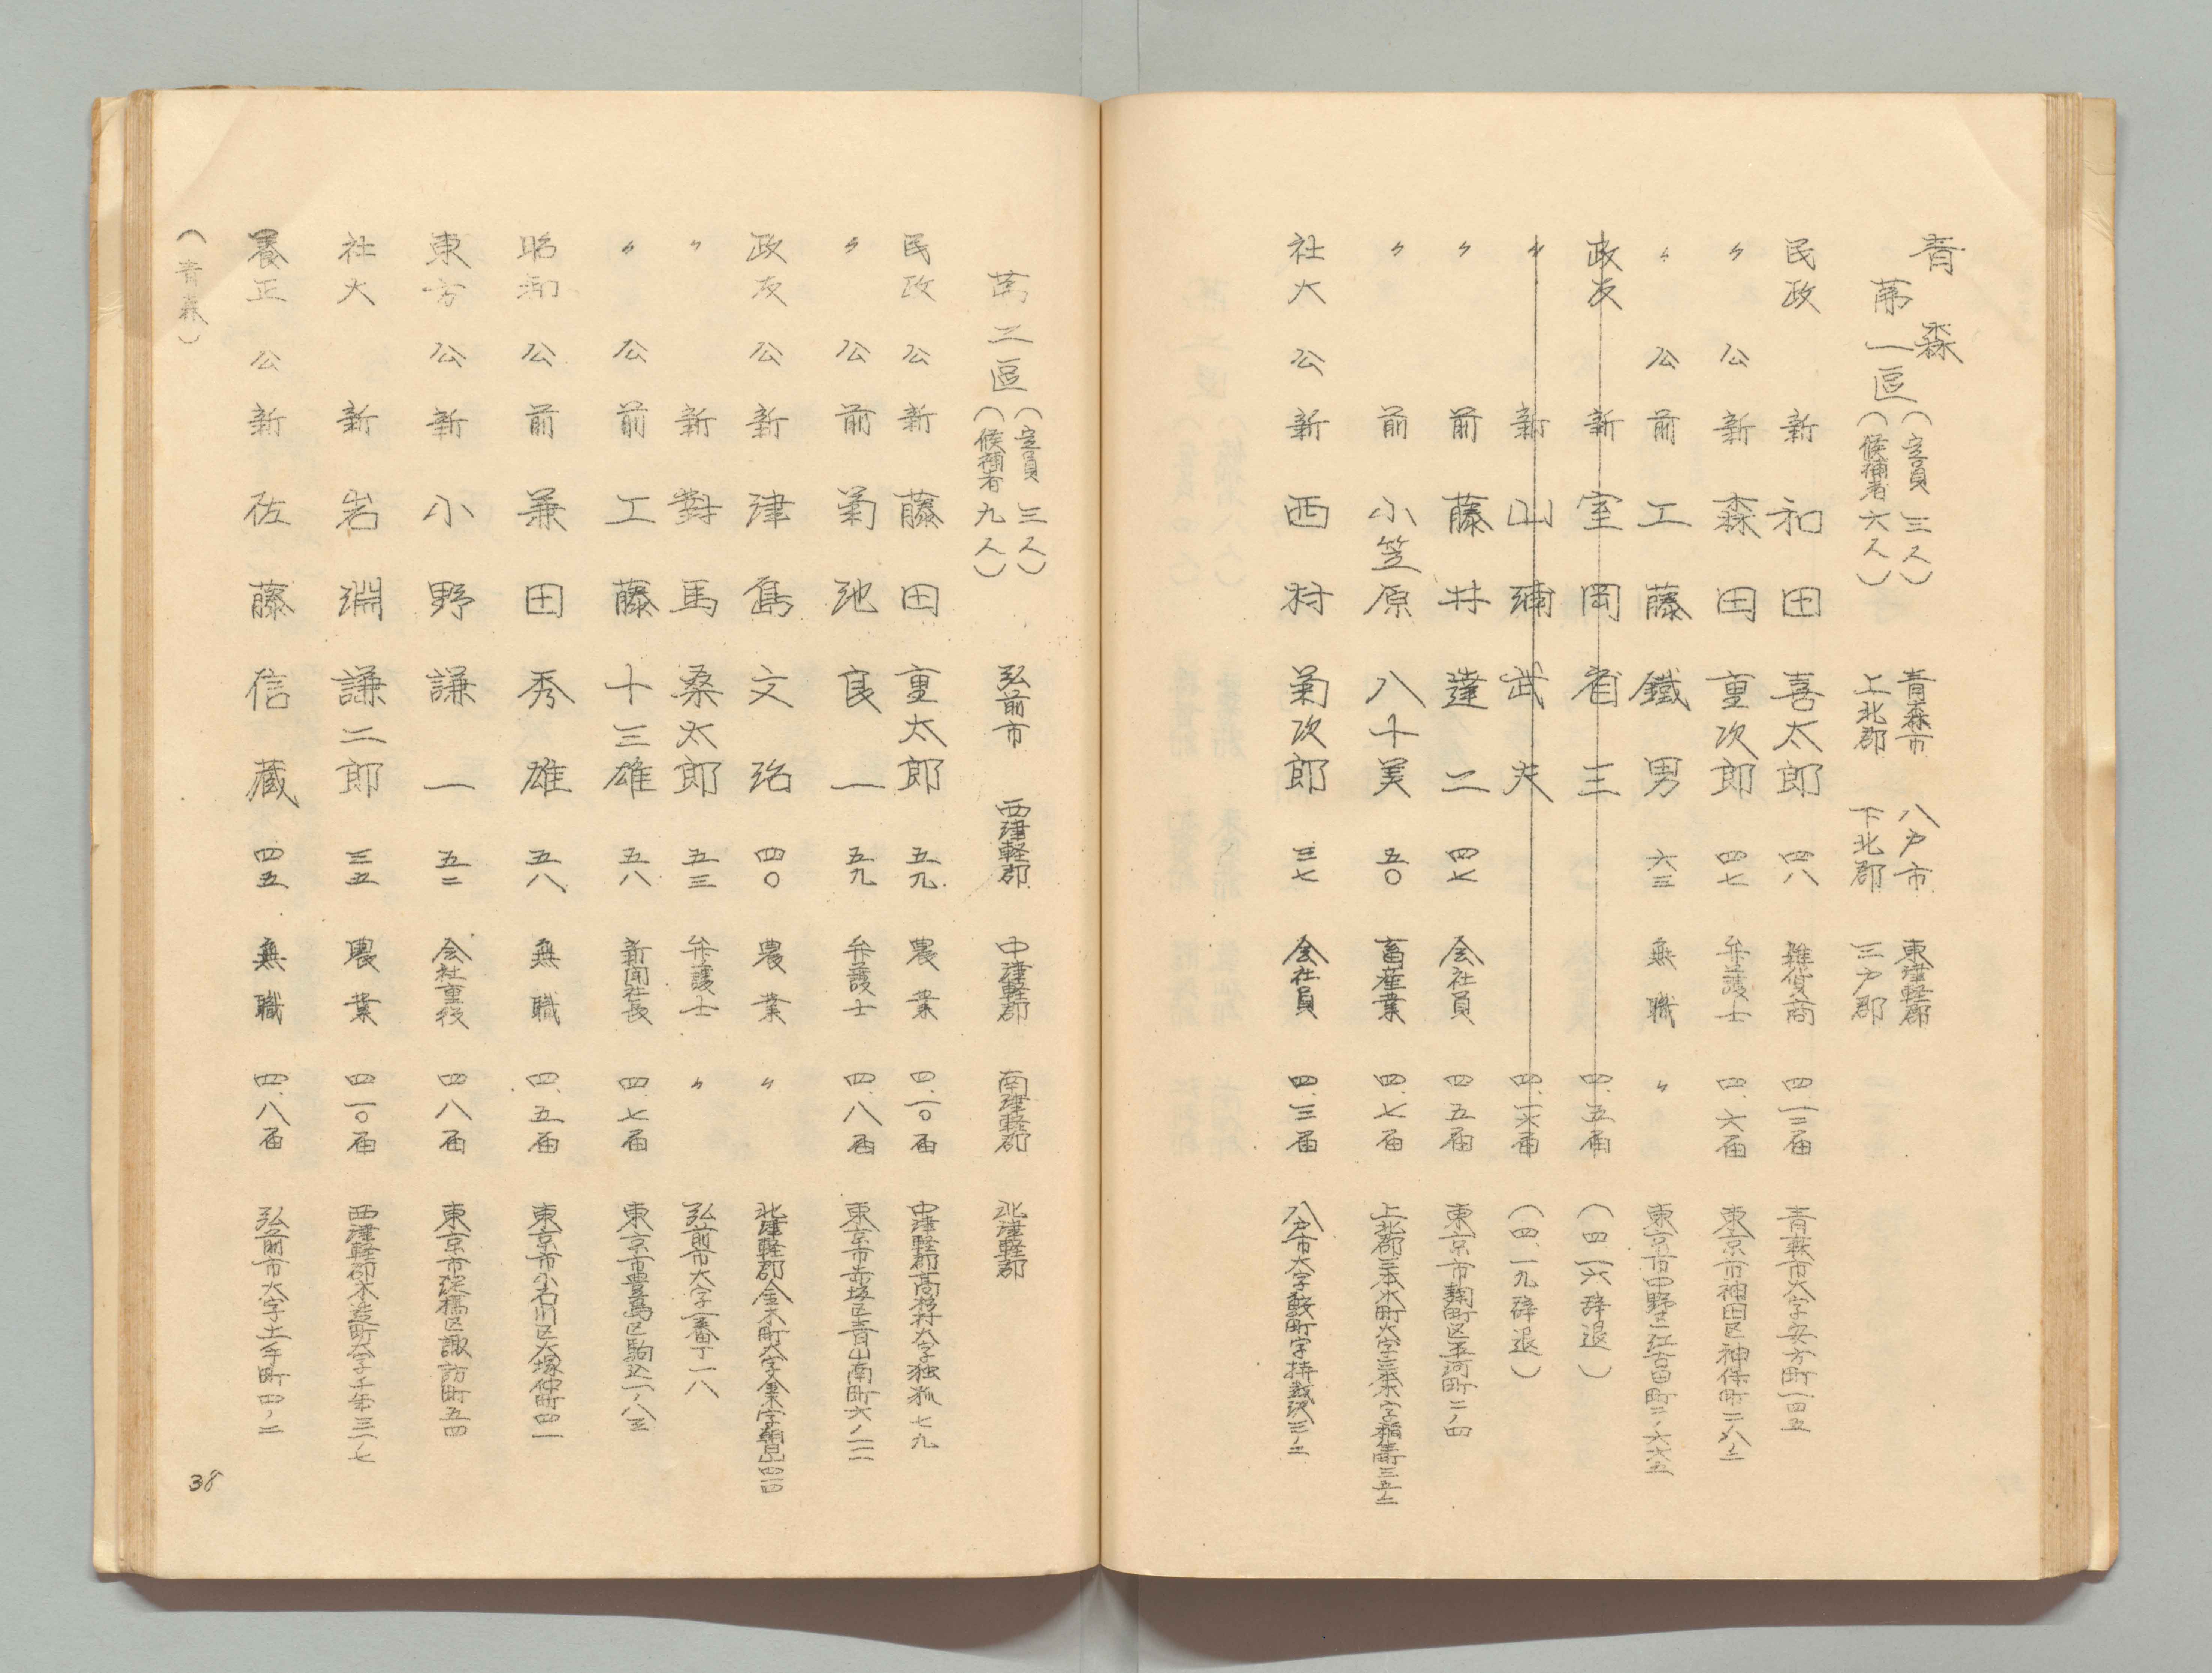 青森
第一區
(定員 三人)
(候補者 六人)
青森市 八戸市 東津軽郡
上北郡 下北郡 三戸郡
民政 新 和田喜太郎 四八 雑貨商 四、一三届 青森市大字安方町一四五
〃 公 新 森田重次郎 四七 弁護士 四、六届 東京市神田区神保町二ノ八ノ二
〃 公 前 工藤鐵男 六三 無職 〃 東京市中野区江古田町二ノ六六五
政友 新 室岡省三 四、五届 (四、一六辞退)
〃 新 山浦武夫 四、一六届 (四、一九辞退)
〃 前 藤井達二 四七 会社員 四、五届 東京市麹町区平河町二ノ四
〃 前 小笠原八十美 五〇 畜産業 四、七届 上北郡三本木町大字三本木字稲生三五ノ二
社大 公 新 西村菊次郎 三七 会社員 四、三届 八戸市大字鮫町字持越沢三ノ二
第二區
(定員 三人)
(候補者 九人)
弘前市 西津軽郡 中津軽郡 南津軽郡 北津軽郡
民政 公 新 藤田重太郎 五九 農業 四、一〇届 中津軽郡高杉村大字独狐七九
〃 公 前 菊池良一 五九 弁護士 四、八届 東京市赤坂区青山南町六ノ一二
政友 公 新 津島文治 四〇 農業 〃 北津軽郡金木町大字金木字朝日山四一四
〃 新 對馬桑太郎 五三 弁護士 〃 弘前市大字一番丁一八
〃 公 前 工藤十三雄 五八 新聞社長 四、七届 東京市豊島区駒込一ノ八三
昭和 公 前 兼田秀雄 五八 無職 四、五届 東京市小石川区大塚仲町四一
東方 公 新 小野謙一 五二 会社重役 四、八届 東京市淀橋区諏訪町五四
社大 新 岩淵謙二郎 三五 農業 四、一〇届 西津軽郡木造町大字千年三一ノ七
養正 公 新 佐藤信蔵 四五 無職 四、八届 弘前市大字土手町四ノ二
(青森)
38